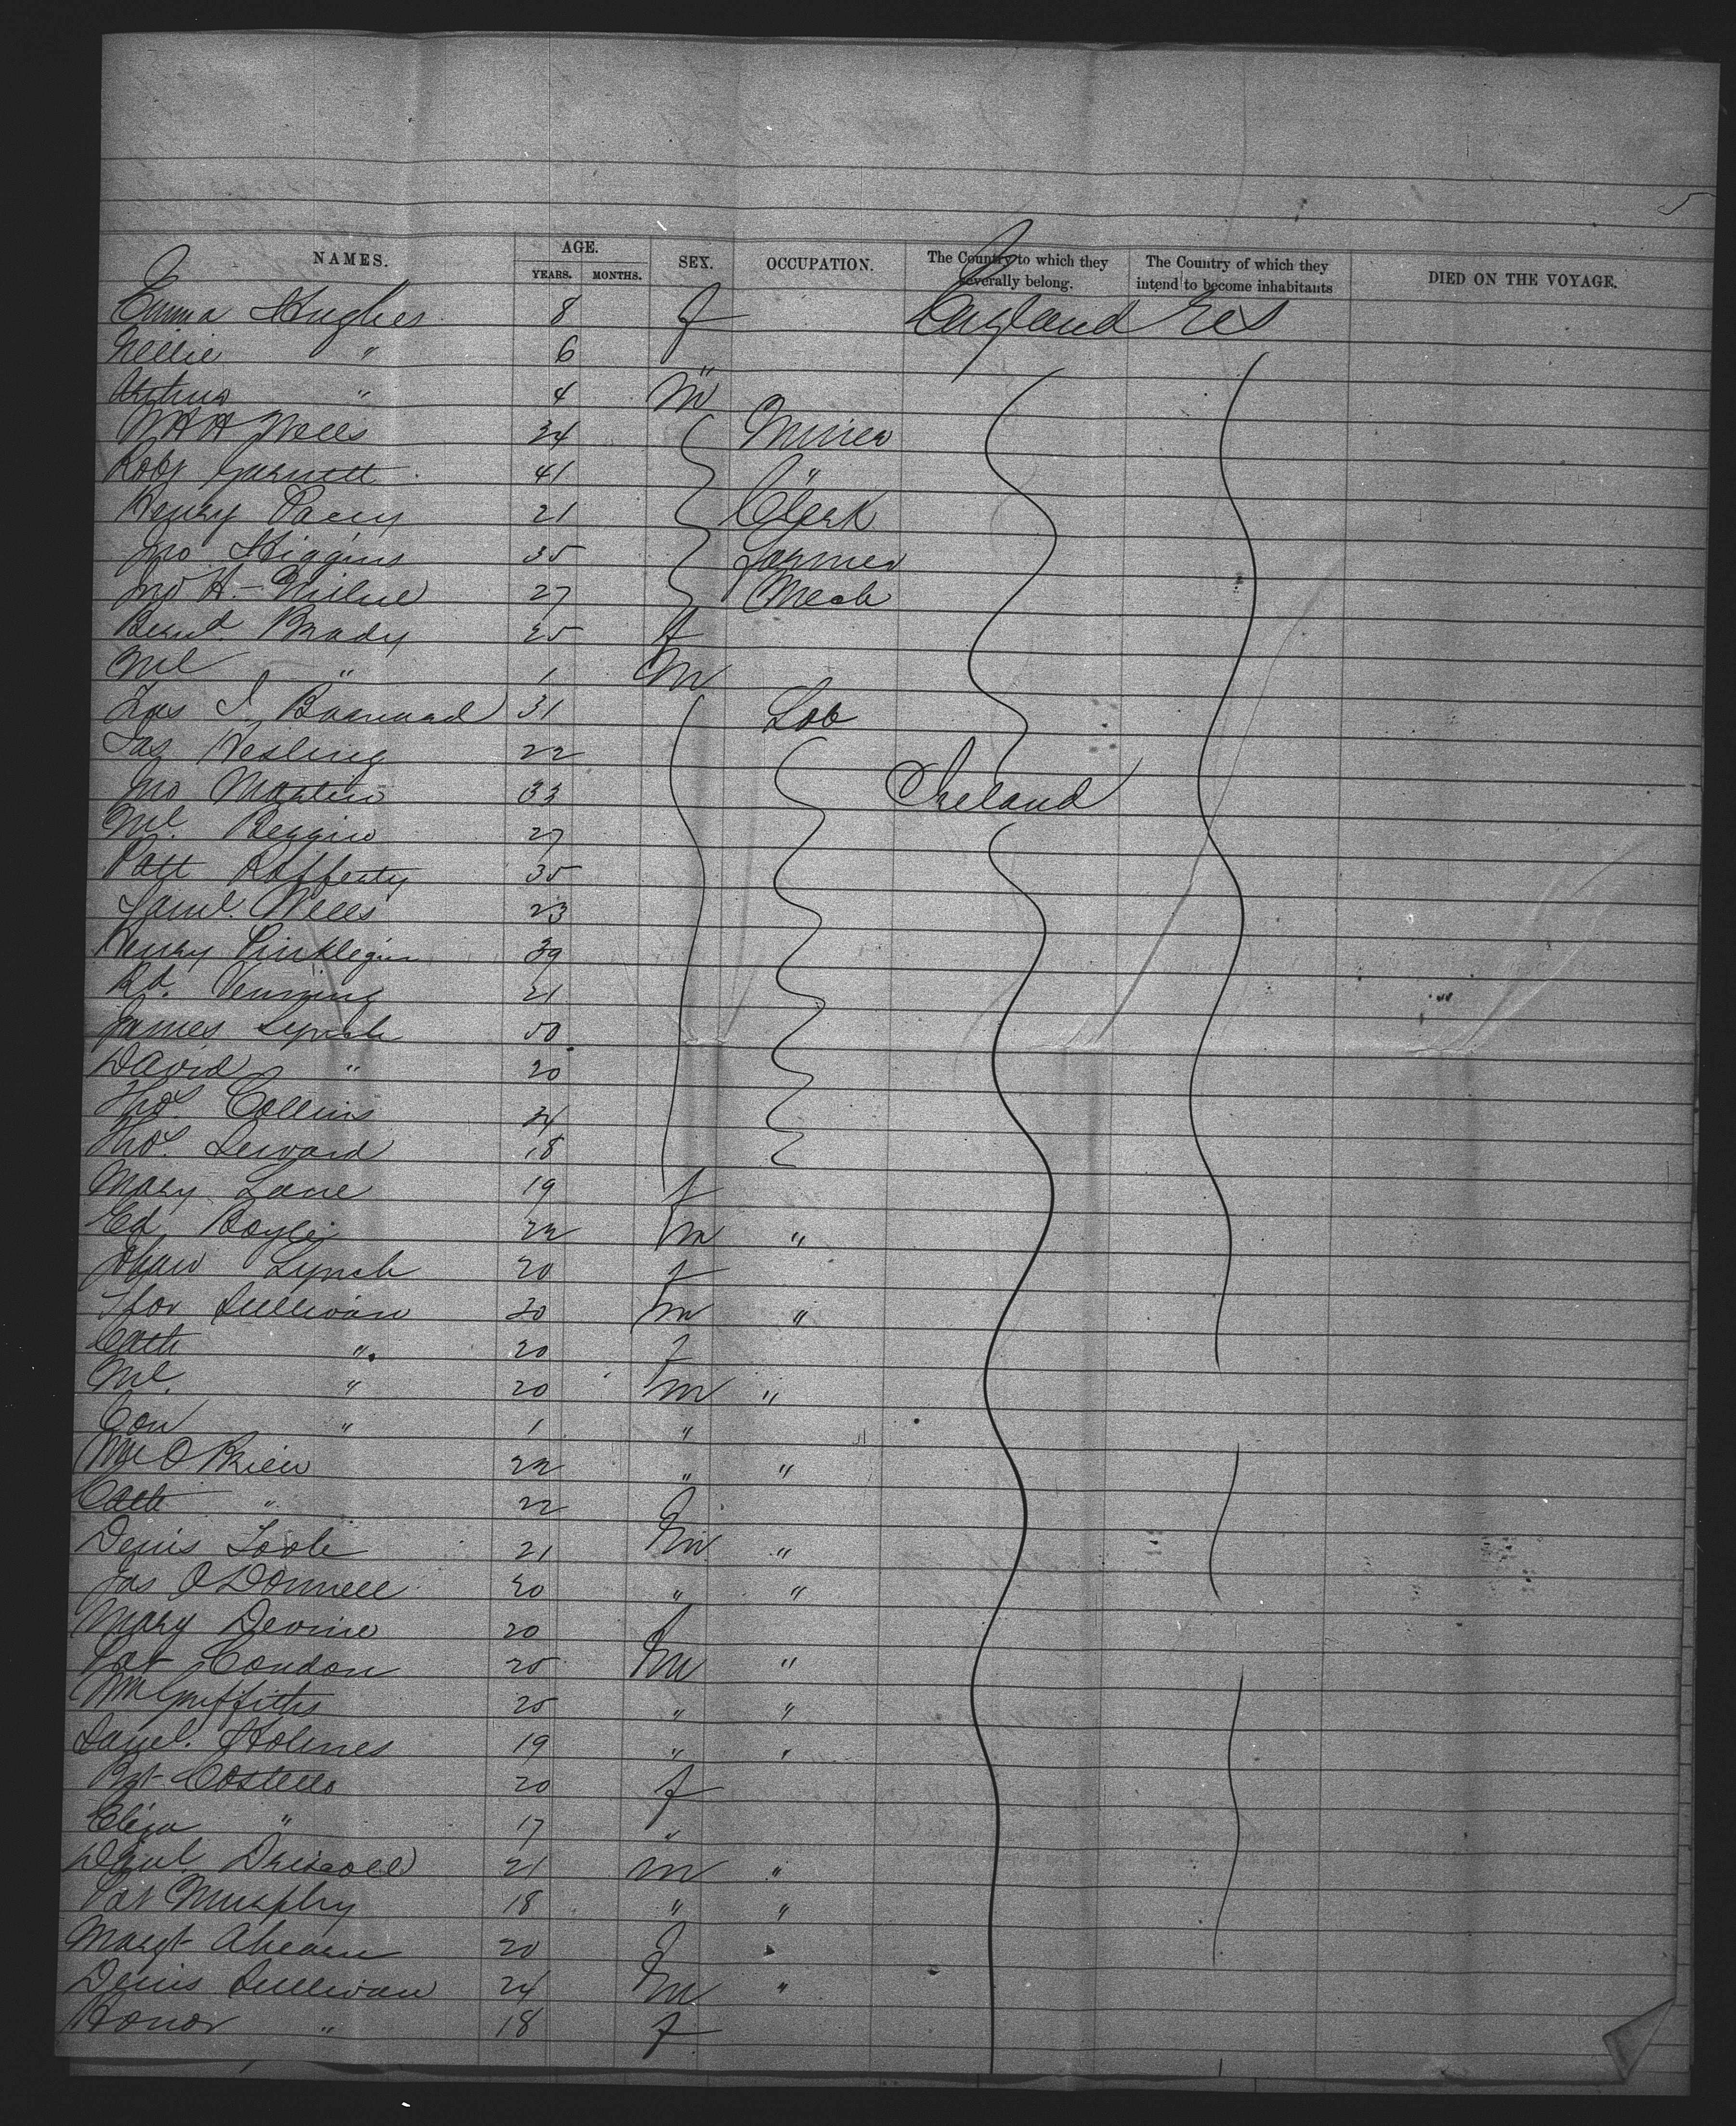 5
NAMES. AGE. YEARS. MONTHS. SEX. OCCUPATION. The Country to which they severally belong. The Country of which they intend to become inhabitants DIED ON THE VOYAGE.
Emma Hughes 8 f England U S
Nellie " 6 "
Arthur " 4 m
W H H Wells 34 Miner
Robt Garnett 41 "
Henry 21 Clerk
Jno Higgins 35 Farmer
Jno H. Milne 27 Mech
Brady 25 f
Ml " 1 m
Jas Barnard 31 Lab
Jas 22
Jno Martin 33 Ireland
Ml. Beggin 27
Patt Rafferty 35
Saml. Wells 23
Henry 39
Rd. Venning 21
James Lynch 50
David " 20
Thos. Collins 24
Thos. 18
Mary Lane 19 f
Ed. 22 m "
Lynch 20 f
Sullivan 30 m "
Cath " 20 f
Ml. " 20 m "
Con " 1 "
Wm O'Brien 22 " "
Cath " 22
Denis Toole 21 m "
Jas O'Donnell 20 " "
Mary Devine 20 f
Pat Condon 25 m "
Wm Griffiths 25 " "
Danl. Holmes 19 " "
Bgt Costello 20 f
Eliza " 17 "
Danl. Driscoll 21 m "
Pat Murphy 18 " "
Margt Ahearn 20 f
Denis Sullivan 24 m "
Honor " 18 f